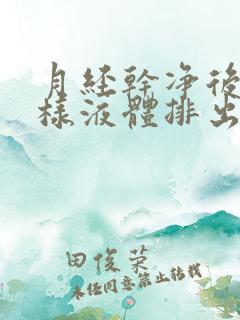 月經幹净後
樣液體排出
田俊荣
未经同意禁止转载